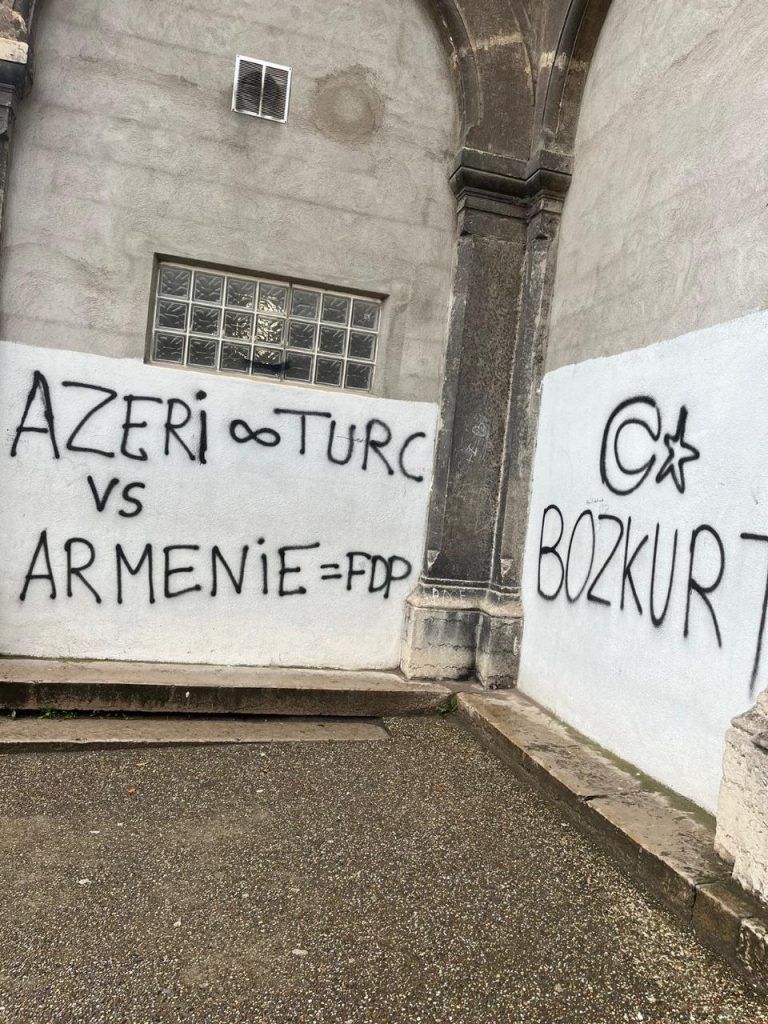 AZERi ∞ TURC
VS
ARMENiE = FDP
BOZKURT